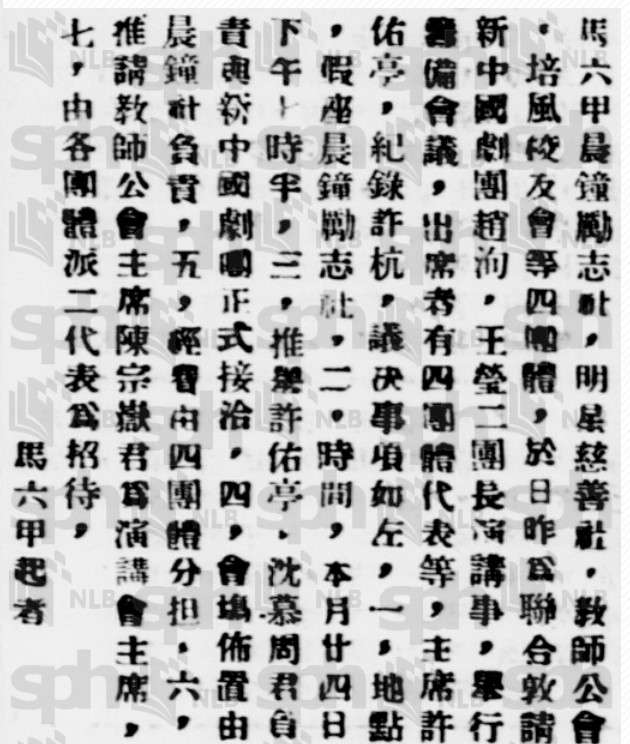 馬六甲晨鐘勵志社，明星慈善社，教師公會
，培風校友會等四團體，於日昨爲聯合敦請
新中國劇團趙洵，王瑩二團長演講事，舉行
籌備會議，出席者有四團體代表等，主席許
佑亭，紀錄許杭，議決事項如左，一，地點
，假座晨鐘勵志社，二，時間，本月廿四日
下午七時半，三，推舉許佑亭，沈慕周君負
責與新中國劇團正式接洽，四，會塲佈置由
晨鐘社負責，五，經費由四團體分担，六，
推請教師公會主席陳宗嶽君爲演講會主席，
七，由各團體派二代表爲招待，
馬六甲起者